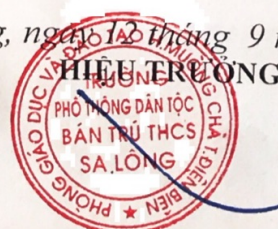 g, ngày 12 tháng 9
HIỆU TRƯỞNG
PHÒNG GIÁO DỤC VÀ ĐÀO TẠO H. MƯỜNG CHÀ T. ĐIỆN BIÊN
TRƯỜNG
PHỔ THÔNG DÂN TỘC
BÁN TRÚ THCS
SA LÔNG